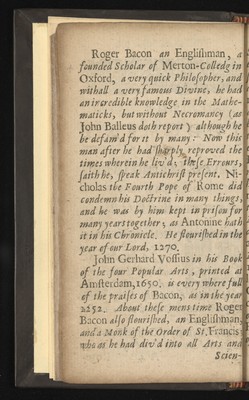 Roger Bacon an Englishman, a
founded Scholar of Merton-Colledg in
Oxford, a very quick Philosopher, and
withall a very famous Divine, he had
an incredible knowledge in the Mathe-
maticks, but without Necromancy (as
John Balleus doth report) although he
be defam'd for it by many: Now this
man after he had sharply reproved the
times wherein he liv'd, these Errours,
saith he, speak Antichrist present. Ni-
cholas the Fourth Pope of Rome did
condemn his Doctrine in many things,
and he was by him kept in prison for
many years together, as Antonine hath
it in his Chronicle. He flourished in the
year of our Lord, 1270.
John Gerhard Vossius in his Book
of the four Popular Arts, printed at
Amsterdam, 1650. is every where full
of the praises of Bacon, as in the year
2252. About these mens time Roger
Bacon also flourished, an Englishman,
and a Monk of the Order of St. Francis
who as he had div'd into all Arts and
Scien-